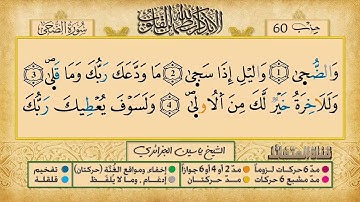 حِزْب 60
سُورَةُ الضُّحَىٰ
وَالضُّحَىٰ 1 وَالَّيْلِ إِذَا سَجَىٰ 2 مَا وَدَّعَكَ رَبُّكَ وَمَا قَلَىٰ 3
وَلَلَاخِرَةُ خَيْرٌ لَّكَ مِنَ ٱلُاولَىٰ 4 وَلَسَوْفَ يُعْطِيكَ رَبُّكَ
الشيخ ياسين الجزائري
مدّ 6 حركات لزوماً
مدّ 2 أو 4 أو 6 جوازاً
إخفاء، ومواقع الغُنَّة (حركتان)
تفخيم
مدّ مشبع 6 حركات
مدّ حركتان
إدغام، وما لا يُلفظ
قلقلة